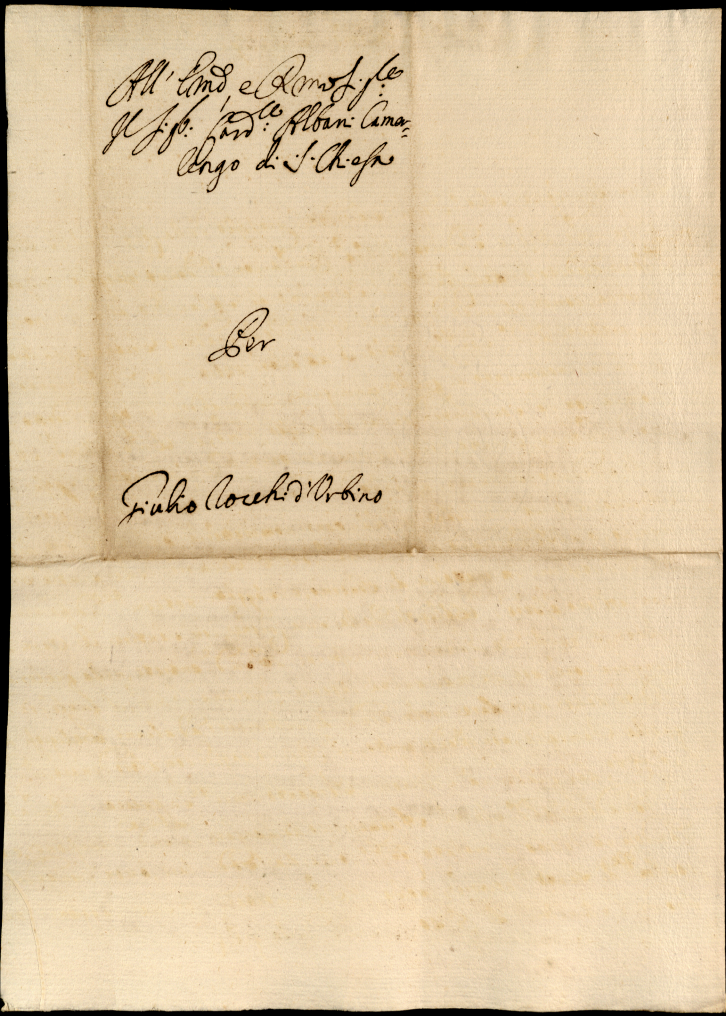 All' Em̃o, e Rmo Sig.re
Il Sig.r Card.le Albani Camer=
lengo di S. Chiesa
Per
Giulio Cocchi d'Urbino